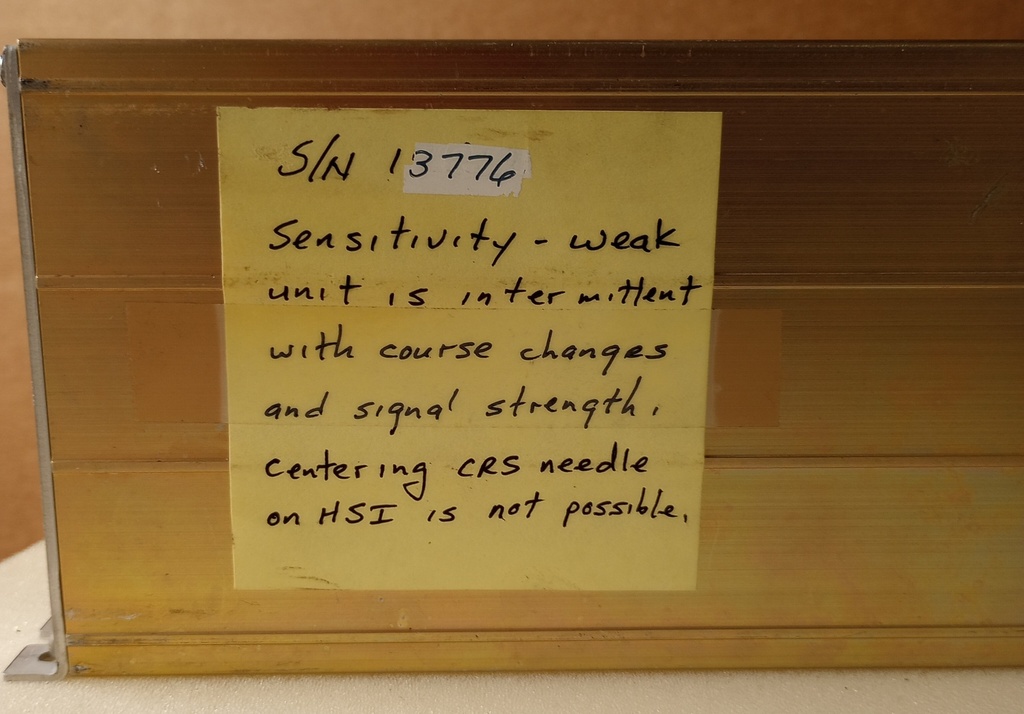 S/N 13776
Sensitivity - weak
unit is intermittent
with course changes
and signal strength.
Centering CRS needle
on HSI is not possible.